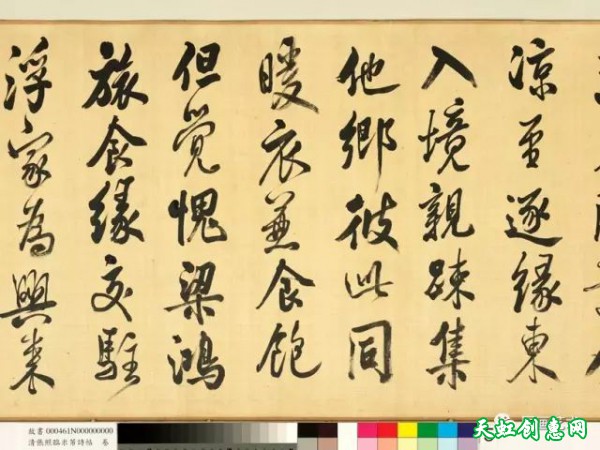 涼至逐緣東
入境親踈集
他鄉彼此同
暖衣兼食飽
但覺愧梁鴻
旅食緣交駐
浮家為興來
故書 000461N000000000
清張照臨米芾詩帖 卷
天虹创惠网